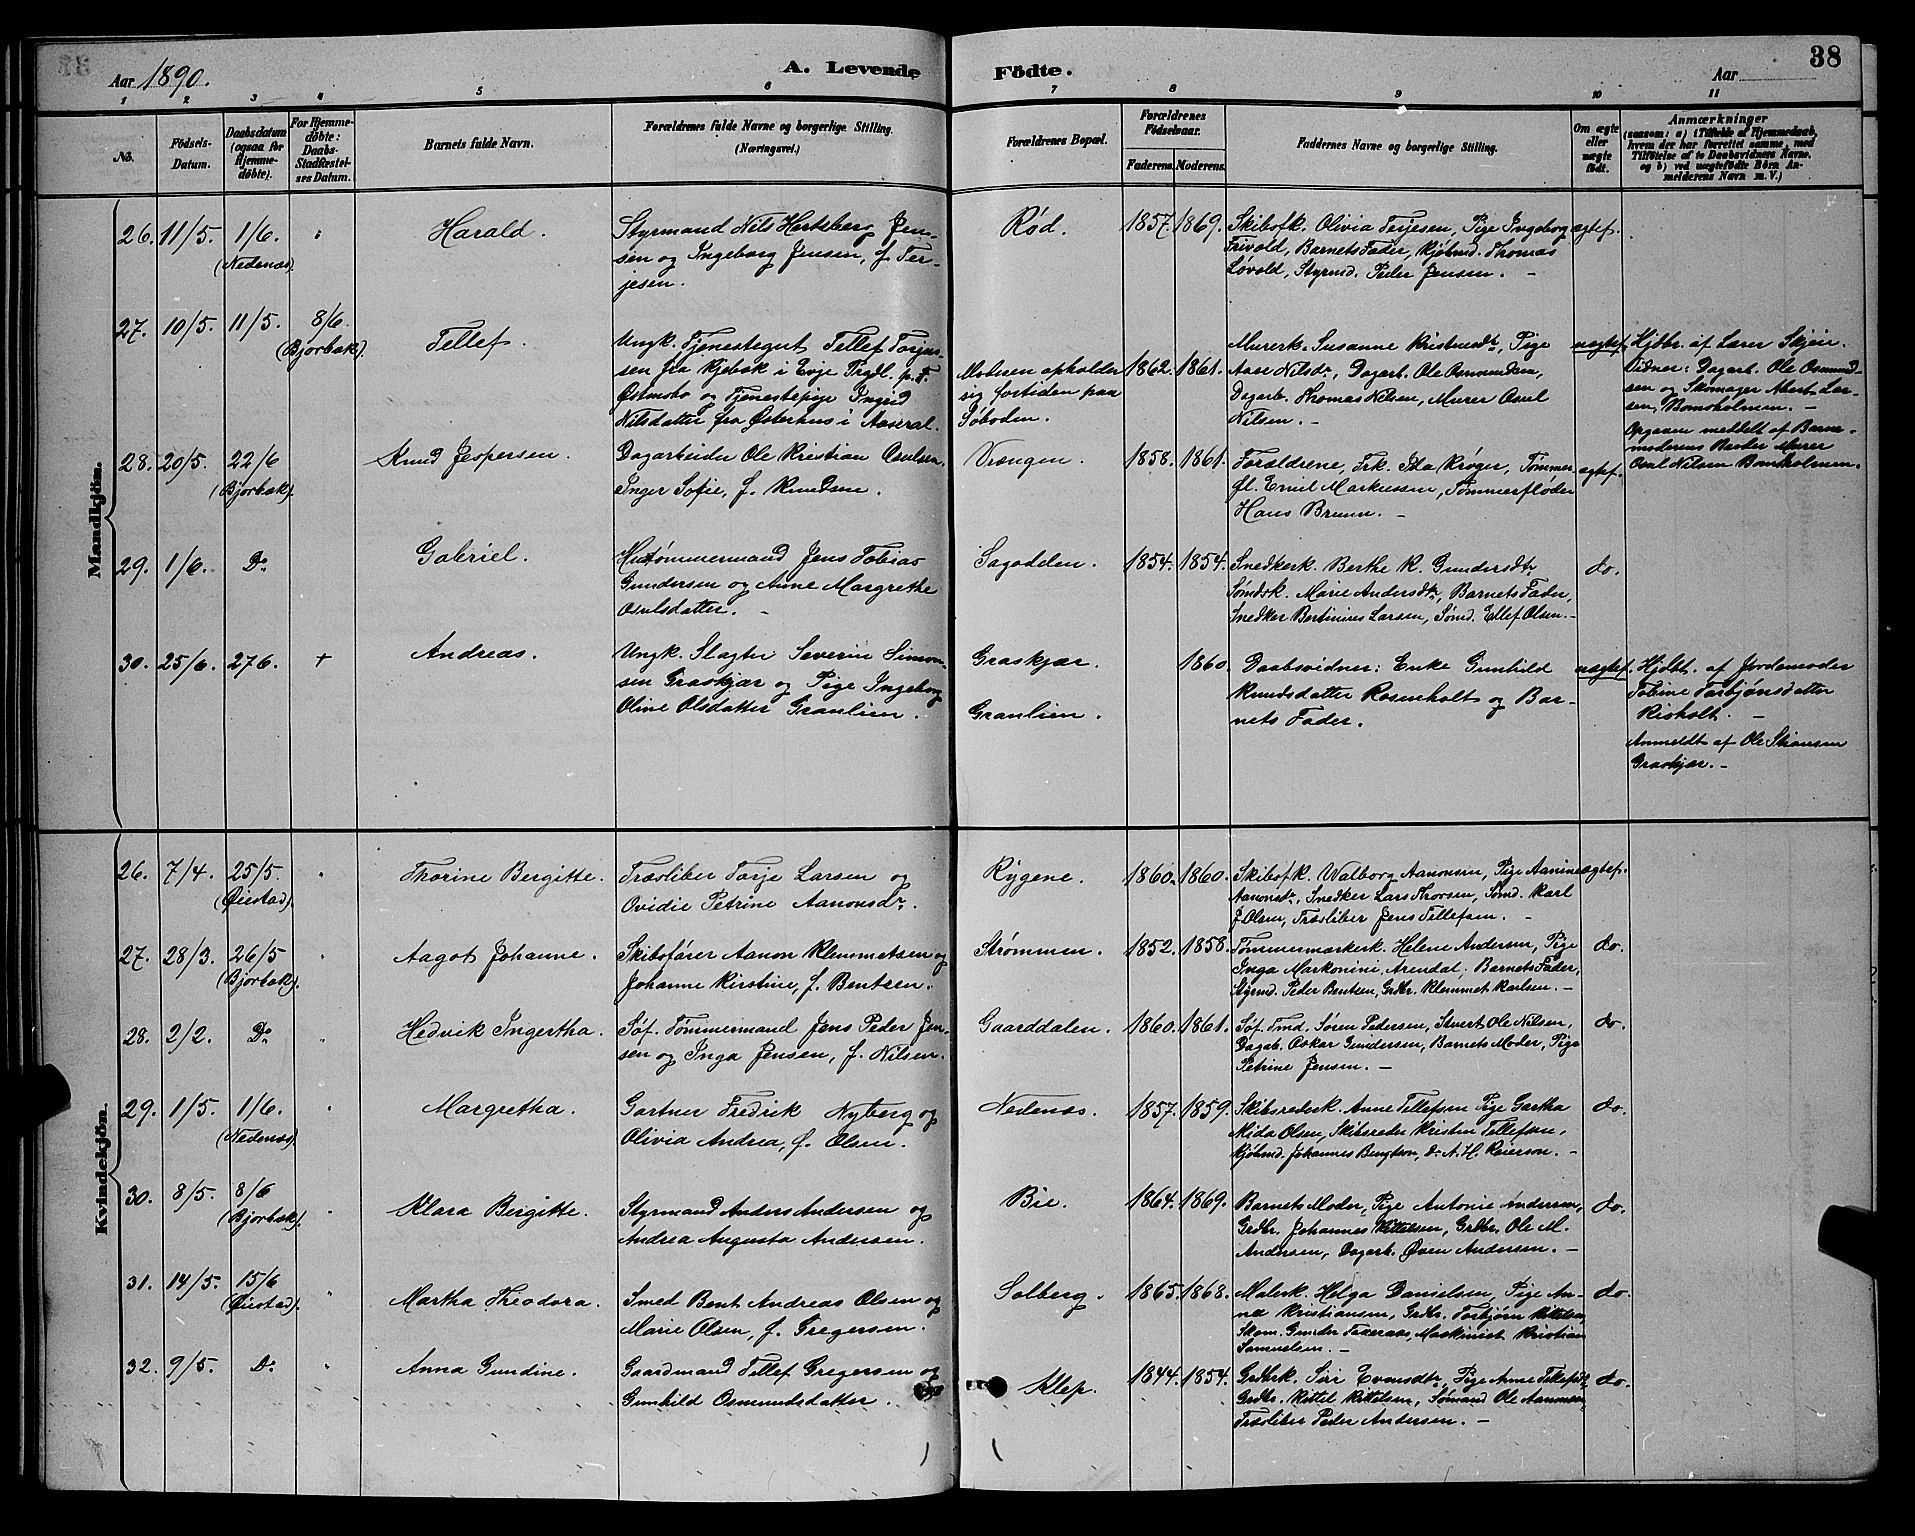 Aar 1890.
A. Levende Födte.
Aar
38
1 2 3 4 5 6 7 8 9 10 11
No.
Födsels-Datum.
Daabsdatum (ogsaa for Hjemmedöbte).
For Hjemmedöbte: Daabs-Stadfæstelses Datum.
Barnets fulde Navn.
Forældrenes fulde Navne og borgerlige Stilling. (Næringsvei.)
Forældrenes Bopæl.
Forældrenes Födselsaar.
Faderens. Moderens.
Faddernes Navne og borgerlige Stilling.
Om ægte eller uægte födt.
Anmærkninger
(saasom: a) i Tilfælde af Hjemmedaab, hvem der har forrettet samme, med Tilföielse af to Daabsvidners Navne, og b) ved uægtefödte Börn Anmelderens Navn m. V.)
Mandkjön.
26. 11/5. 1/6. (Nedenæs) Harald.
Styrmand Nils Hertsberg Jen-
sen og Ingeborg Jensen, f. Ter-
jesen.
Rød. 1857. 1869.
Skibsfk. Olivia Terjesen, Pige Ingeborg
Frivold, Barnets Fader, Kjøbmd. Thomas
Løvold, Styrmd. Peder Jensen. –
ægtef.
27. 10/5. 11/5. 8/6. (Bjorbæk). Tellef.
Ungk. Tjenestegut Tellef Torjus-
sen fra Kjebæk i Evje Prgdl. p. T.
Østmoto og Tjenestepige Ingrid
Nilsdatter fra Østerhus i Aaseral.
Moderen opholder
sig fortiden paa
Søboden.
1862. 1861.
Murerk. Susanne Kristensdtr, Pige
Aase Nilsdr., Dagarb. Ole Osmundsen,
Dagarb. Thomas Nilsen, Murer Osul
Nilsen. –
uægtef.
Hjdbt. af Lærer Skjeie.
Vidner: Dagarb. Ole Osmund-
sen og Skomager Abert Lar-
sen, Bomsholmen. –
Opgaven meddelt af Barne-
moderens Broder Murer
Osul Nilsen Bomsholmen.
28. 20/5. 22/6 (Bjorbæk). Knud Jespersen.
Dagarbeider Ole Kristian Osulsen.
Inger Sofie, f. Knudsen.
Vrængen. 1858. 1861.
Forældrene, Frk. Ida Krøger, Tømmer-
fl. Emil Markussen, Tømmerfløder
Hans Bruun. –
ægtef.
29. 1/6. Do. Gabriel.
Hustømmermand Jens Tobias
Gundersen og Anne Margrethe
Osulsdatter. –
Sagodden. 1854. 1854.
Snedkerk. Berthe K. Gundersdtr
Sømdsk. Marie Andersdtr, Barnets Fader,
Snedker Bertinius Larsen, Sømd. Ellef Olsen. –
do.
30. 25/6. 276. + Andreas.
Ungk. Slagter Severin Simon-
sen Graskjær og Pige Ingeborg
Oline Olsdatter Granlien.
Graskjær.
Granlien.
1860
Daabsvidner: Enke Gunhild
Knudsdatter Rosenholt og Bar-
nets Fader.
uægtef.
Hjdbt. af Jordemoder
Tobine Torbjønsdatter
Risholt. –
Anmeldt af Ole Simonsen
Graskjær. –
Kvindekjön.
26. 7/4. 25/5. (Øiestad). Thorine Bergitte.
Træsliber Torje Larsen og
Ovidie Petrine Aanonsdr.
Rygene. 1860. 1860.
Skibsfk. Walborg Aanonsen, Pige Aanine
Aanonsdr., Snedker Lars Thorsen, Sømd. Karl
J. Olsen, Træsliber Jens Tellefsen. –
ægtef.
27. 28/3. 26/5 (Bjorbæk). Aagot Johanne.
Skibsfører Aanon Klemmetsen og
Johanne Kirstine, f. Bentsen.
Strømmen. 1852. 1858.
Tømmermærkerk. Helene Andersen, Pige
Inga Markonini, Arendal, Barnets Fader,
Styrmd. Peder Bentsen, Grdbr. Klemmet Karlsen. –
do.
28. 2/2. Do. Hedvik Ingertha.
Søf. Tømmermand Jens Peder Jen-
sen og Inga Jensen, f. Nilsen.
Gaarddalen. 1860. 1861.
Søf. Tmd. Søren Pedersen, Stuert Ole Nilsen,
Dagab. Oskar Gundersen, Barnets Moder, Pige
Petrine Jensen. –
do.
29. 1/5. 1/6. (Nedenæs) Margretha.
Gartner Fredrik Nyberg og
Olivia Andrea, f. Olsen.
Nedenæs. 1857. 1859.
Skibsrederk. Anne Tellefsen Pige Gartha
Mida Olsen, Skibsreder Kristen Tellefsen,
Kjøbmd. Johannes Bengtson, do. A. H. Reierson. –
do.
30. 8/5. 8/6 (Bjorbæk). Klara Birgitte.
Styrmand Anders Andersen og
Andrea Augusta Andersen.
Bie. 1864. 1869.
Barnets Moder, Pige Antonie Andersen,
Grdbr. Johannes Kittelsen, Grdbr. Ole M.
Andersen, Dagarb. Øven Andersen. –
do.
31. 14/5. 15/6 (Øiestad). Martha Theodora.
Smed Bent Andreas Olsen og
Marie Olsen, f. Gregersen.
Solberg. 1865. 1868.
Malerk. Helga Danielsen, Pige An-
na Kristiansen, Grdbr. Torbjørn Kittelsen,
Skom. Gunder Taxeraas, Maskinist Kristian
Samuelsen. –
do.
32. 9/5. Do. Anna Gundine.
Gaardmand Tellef Gregersen og
Gunhild Osmundsdatter.
Klep. 1844. 1854.
Grdbrk. Siri Evensdtr, Pige Anne Tellefsdr,
Grdbr. Kittel Kittelsen, Sømand Ole Aanonsen,
Træsliber Peder Andersen. –
do.